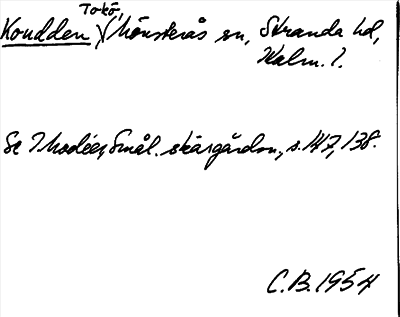 Tokö,
Koudden Mönsterås sn, Stranda hd,
Kalm. l.
Se Rhodéen, Smål. skärgårdsn, s. 147, 138.
C.B. 1954